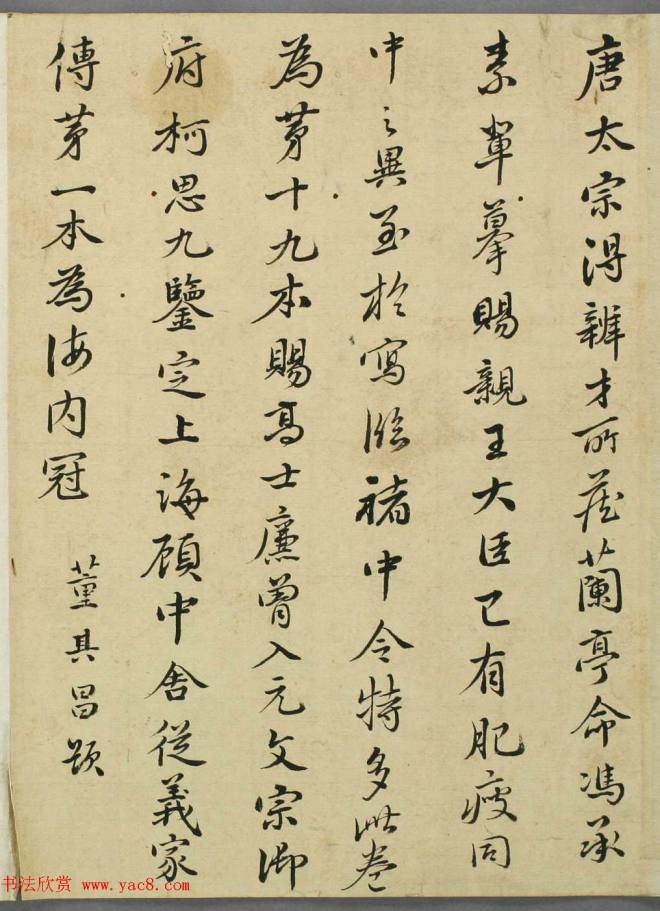 唐太宗得辨才所藏蘭亭命馮承
素輩摹賜親王大臣已有肥瘦同
中之異至於寫臨褚中令特多此卷
為茅十九本賜高士廉曾入元文宗御
府柯思九鑒定上海顧中舍從義家
傳茅一本為海內冠
董其昌題
书法欣赏 www.yac8.com